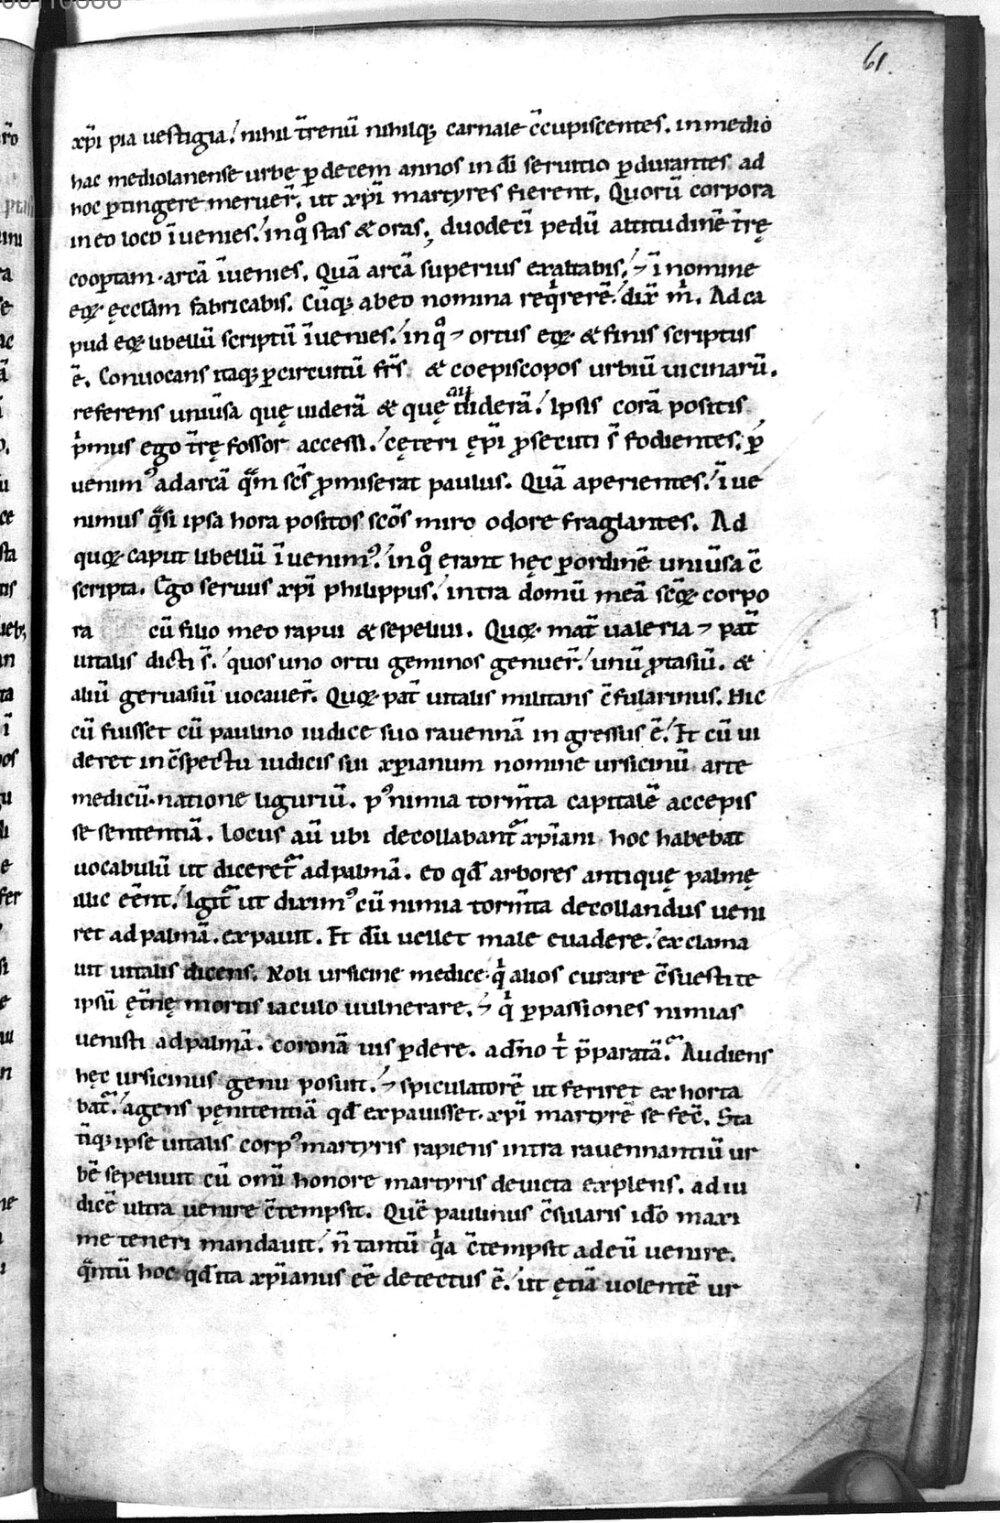 61.
xp̄i pia uestigia. nihil t̄renū nihilq; carnale c̄cupiscentes. in medio
hac mediolanense urbe p̱ decem annos in dī seruitio p̱durantes. ad
hoc p̱tingere meruer̄. ut xp̄i martyres fierent. Quorū corpora
in eo loco īuenies. in qͦ stas & oras, duodecī pedū altitudinē t̄rę
cooptam. arcā īuenies. Quā arcā superius exaltabis. ⁊ ī nomine
eoꝝ ęccłam fabricabis. Cūq; ab eo nomina reqͥrerē. dix̄ m̄. Ad ca
pud eoꝝ libellū scriptū īuenies. in qͦ ⁊ ortus eoꝝ & finis scriptus
ē. Conuocans itaq; p̱ circuitū fr̄s & coepiscopos urbiū uicinarū.
referens uniūsa quę uiderā & quę audierā. Ipsis corā positis
pͥmus ego t̄rę fossor accessi. cęteri ęp̄i ꝓsecuti s̄ fodientes. p̱
uenimꝰ ad arcā qͣm sc̄s ꝓmiserat paulus. Quā aperientes. īue
nimus qͣsi ipsa hora positos sc̄os miro odore fraglantes. Ad
quoꝝ caput libellū īuenimꝰ. in qͦ erant hęc p̱ ordinē uniūsa c̄
scripta. Ego seruus xp̄i philippus. intra domū meā sc̄oꝝ corpo
ra cū filio meo rapui & sepeliui. Quoꝝ mat̄ ualeria ⁊ pat̄
uitalis dicti s̄. quos uno ortu geminos genuer̄. unū ꝓtasiū. &
aliū geruasiū uocauer̄. Quoꝝ pat̄ uitalis militans c̄sularimus. Hic
cū fuisset cū paulino iudice suo rauennā ingressus ē. Et cū ui
deret in c̄spectu iudicis sui xp̄ianum nomine ursicinū arte
medicū. natione liguriū. pꝰ nimia torm̄ta capitalē accepis
se sententiā. Locus aū ubi decollabant᷑ xp̄iani hoc habebat
uocabulū ut diceret᷑ ad palmā. eo qđ arbores antiquę palmę
illic eēnt. Igit᷑ ut diximꝰ cū nimia torm̄ta decollandus ueni
ret ad palmā. expauit. Et dū uellet male euadere. exclama
uit uitalis dicens. Noli ursicine medice. qͥ alios curare c̄suesti te
ipsū ęt̄nę mortis iaculo uulnerare. ⁊ qͥ p̱ passiones nimias
uenisti ad palmā. coronā uis p̱dere. a dn̄o tͥ p̄paratā. Audiens
hęc ursicinus genu posuit. ⁊ spiculatorē ut feriret exhorta
bat᷑. agens pęnitentiā qđ expauisset. xp̄i martyrē se fec̄. Sta
tīq; ipse uitalis corpꝰ martyris rapiens intra rauennantiū ur
bē sepeliuit cū omī honore martyris deuicta explens. ad iu
dicē ultra uenire c̄tempsit. Quē paulinus c̄sularis iđo maxi
me teneri mandauit. n̄ tantū qͥa c̄tempsit ad eū uenire.
qͣntū hoc qđ ita xp̄ianus eē detectus ē. ut ętiā uolentē ur